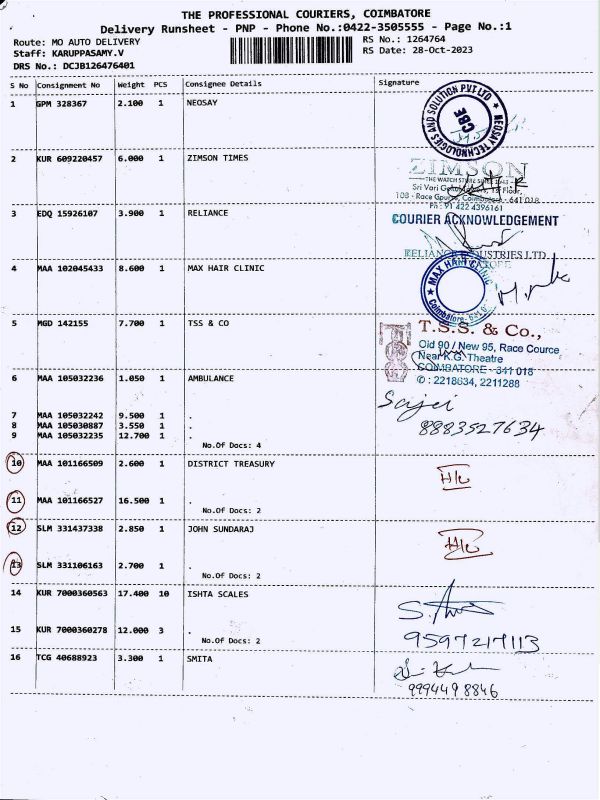 THE PROFESSIONAL COURIERS, COIMBATORE
Delivery Runsheet - PNP - Phone No.:0422-3505555 - Page No.:1
Route: MO AUTO DELIVERY RS No.: 1264764
Staff: KARUPPASAMY.V RS Date: 28-Oct-2023
DRS No.: DCJB126476401
S No Consignment No Weight PCS Consignee Details Signature
1 GPM 328367 2.100 1 NEOSAY
NEOSAY TECHNOLOGIES AND SOLUTION PVT LTD
CBE
2 KUR 609220457 6.000 1 ZIMSON TIMES
ZIMSON
THE WATCH STORE SINCE 1948
Sri Vari Floor,
108 - Race Coimbatore - 641 018
Ph : 91 422 4396161
3 EDQ 15926107 3.900 1 RELIANCE
COURIER ACKNOWLEDGEMENT
RELIANCE INDUSTRIES LTD
4 MAA 102045433 8.600 1 MAX HAIR CLINIC
MAX HAIR CLINIC
Coimbatore
5 MGD 142155 7.700 1 TSS & CO
T.S.S. & Co.,
Old 90 / New 95, Race Cource
Near K.G. Theatre
COIMBATORE - 641 018
✆ : 2218634, 2211288
6 MAA 105032236 1.050 1 AMBULANCE
7 MAA 105032242 9.500 1 .
8 MAA 105030887 3.550 1 .
9 MAA 105032235 12.700 1 .
8883527634
No.Of Docs: 4
10 MAA 101166509 2.600 1 DISTRICT TREASURY
11 MAA 101166527 16.500 1 .
No.Of Docs: 2
12 SLM 331437338 2.850 1 JOHN SUNDARAJ
13 SLM 331106163 2.700 1 .
No.Of Docs: 2
14 KUR 7000360563 17.400 10 ISHTA SCALES
15 KUR 7000360278 12.000 3 .
9597217113
No.Of Docs: 2
16 TCG 40688923 3.300 1 SMITA
9994498846